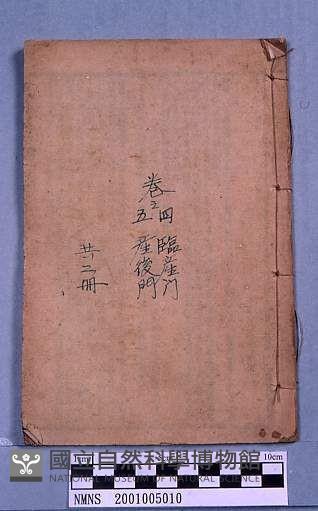 卷之四 臨產門
五 產後門
共二冊
1cm
10cm
國立自然科學博物館
NATIONAL MUSEUM OF NATURAL SCIENCE
NMNS 2001005010